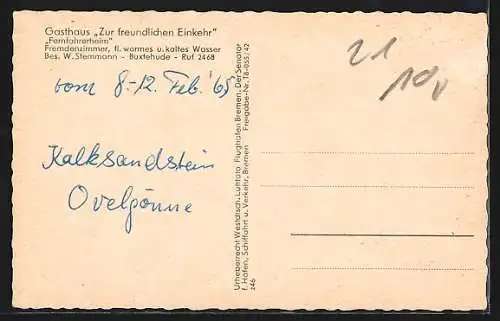 Gasthaus „Zur freundlichen Einkehr"
„Fernfahrerheim"
Fremdenzimmer, fl. warmes u. kaltes Wasser
Bes. W. Stemmann - Buxtehude - Ruf 2468
vom 8-12. Feb. '65
Kalksandstein
Ovelgönne
Urheberrecht Westdtsch. Luftfoto Flughafen Bremen, Der Senator
f. Häfen, Schiffahrt u. Verkehr, Bremen Freigabe-Nr. 18-055/42
246
21
10,